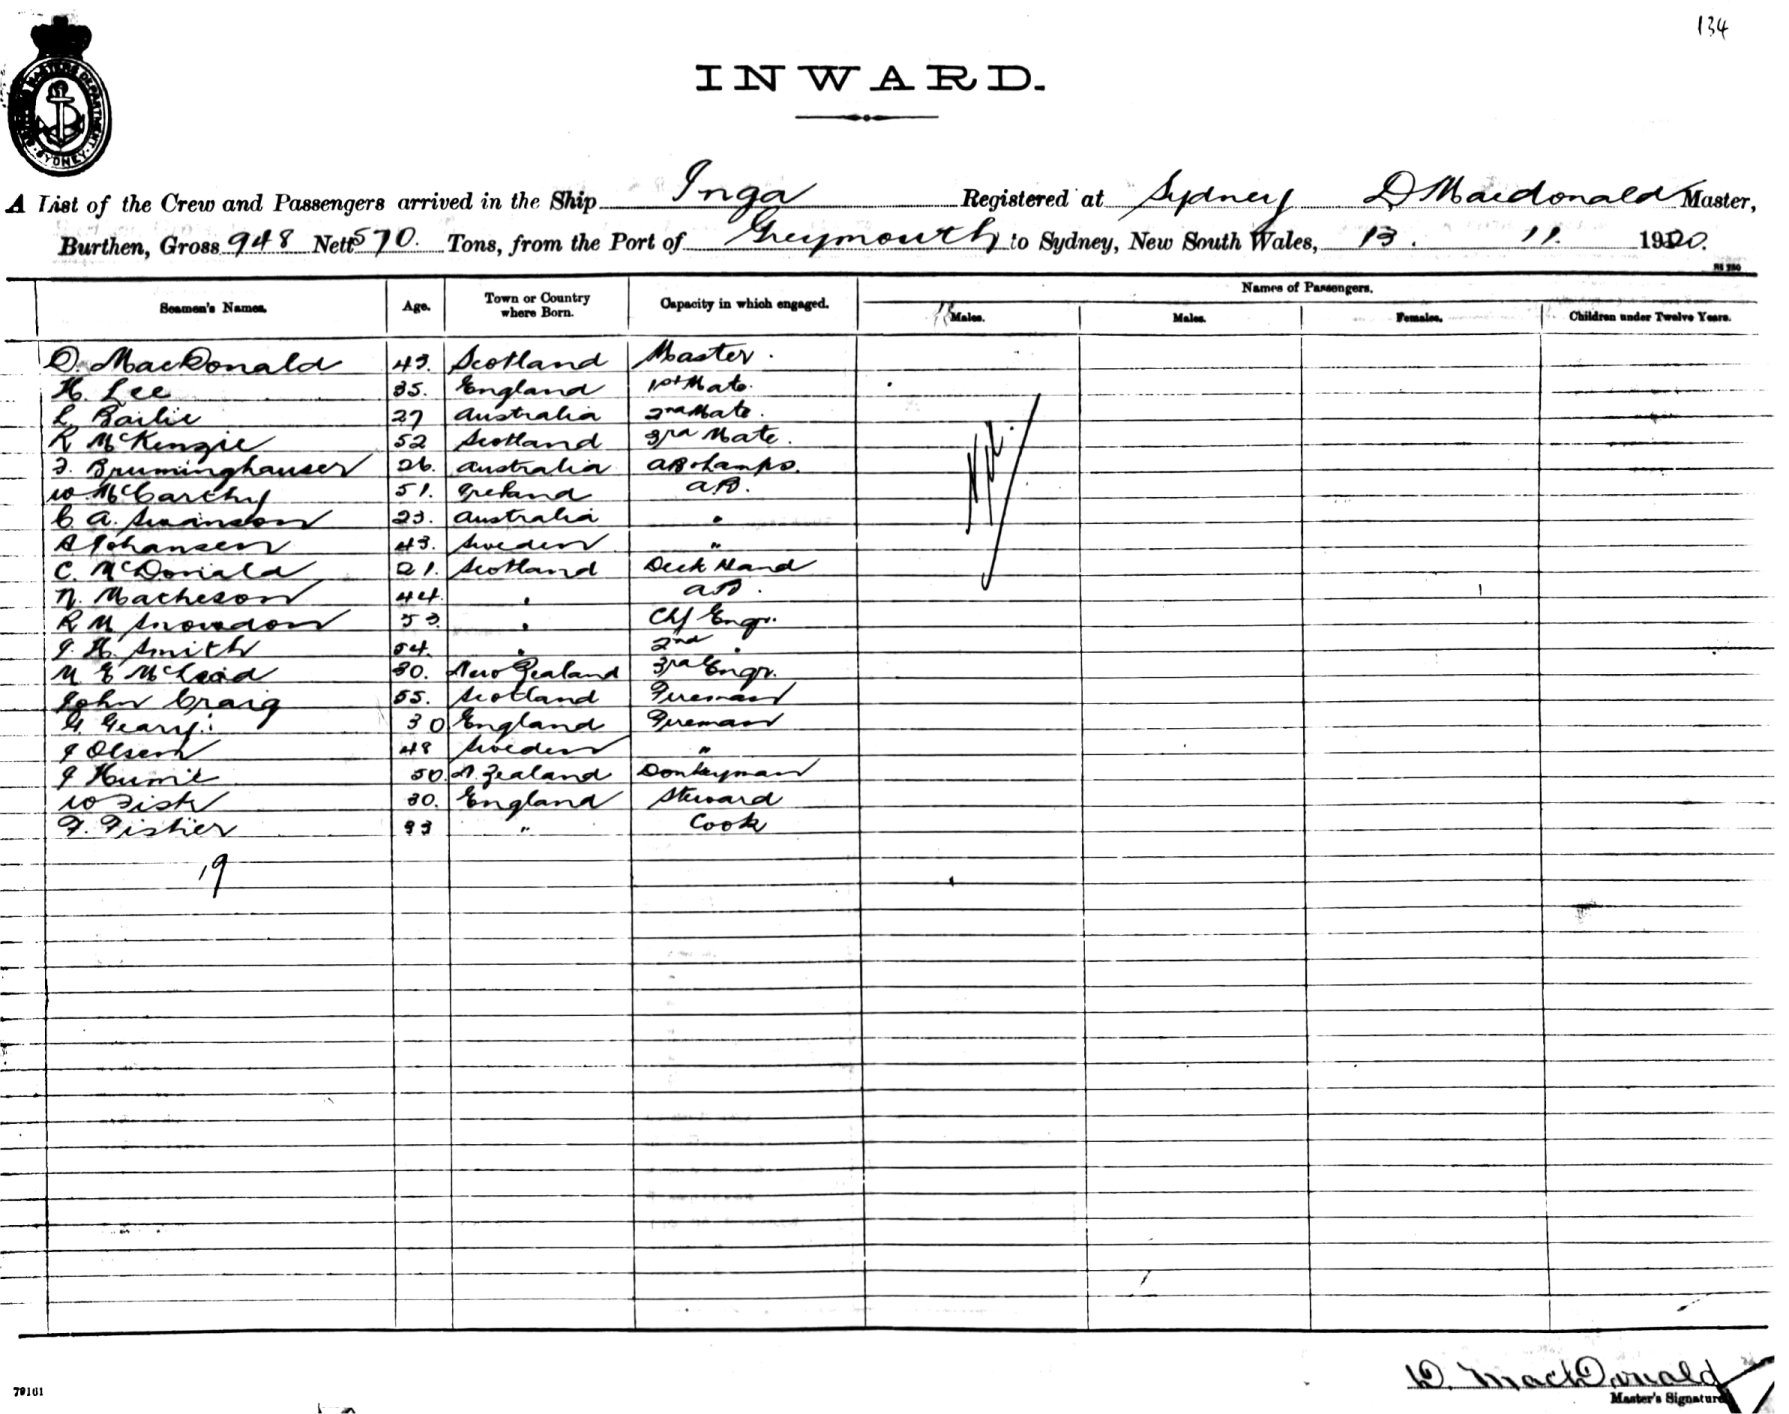 134
SHIPPING MASTERS DEPARTMENT SYDNEY
INWARD.
A List of the Crew and Passengers arrived in the Ship Inga Registered at Sydney D Macdonald Master,
Burthen, Gross 948 Nett 570. Tons, from the Port of Greymouth to Sydney, New South Wales, 13. 11. 1920.
Seamen's Names. Age. Town or Country where Born. Capacity in which engaged. Names of Passengers.
Males. Males. Females. Children under Twelve Years.
D. MacDonald 43. Scotland Master.
H. Lee 35. England 1st Mate.
L Bailie 27 Australia 2nd Mate.
R McKenzie 52 Scotland 3rd Mate.
F. Bruminghauser 26. Australia AB & Lamps.
W. McCarthy 51. Ireland AB.
C. A. Swanson 23. Australia "
A Johansen 43. Sweden "
C. McDonald 21. Scotland Deck Hand
N. Matheson 44. " AB.
R M Snowdon 53. " Chf Engr.
J. H. Smith 54. " 2nd "
M E McLeod 30. New Zealand 3rd Engr.
John Craig 55. Scotland Fireman
G. Geary 30 England Fireman
J Olsen 48 Sweden "
J 50. N. Zealand Donkeyman
W Fisk 30. England Steward
F. Fisher 33 " Cook
Nil.
19
D. MacDonald
Master's Signature
79161